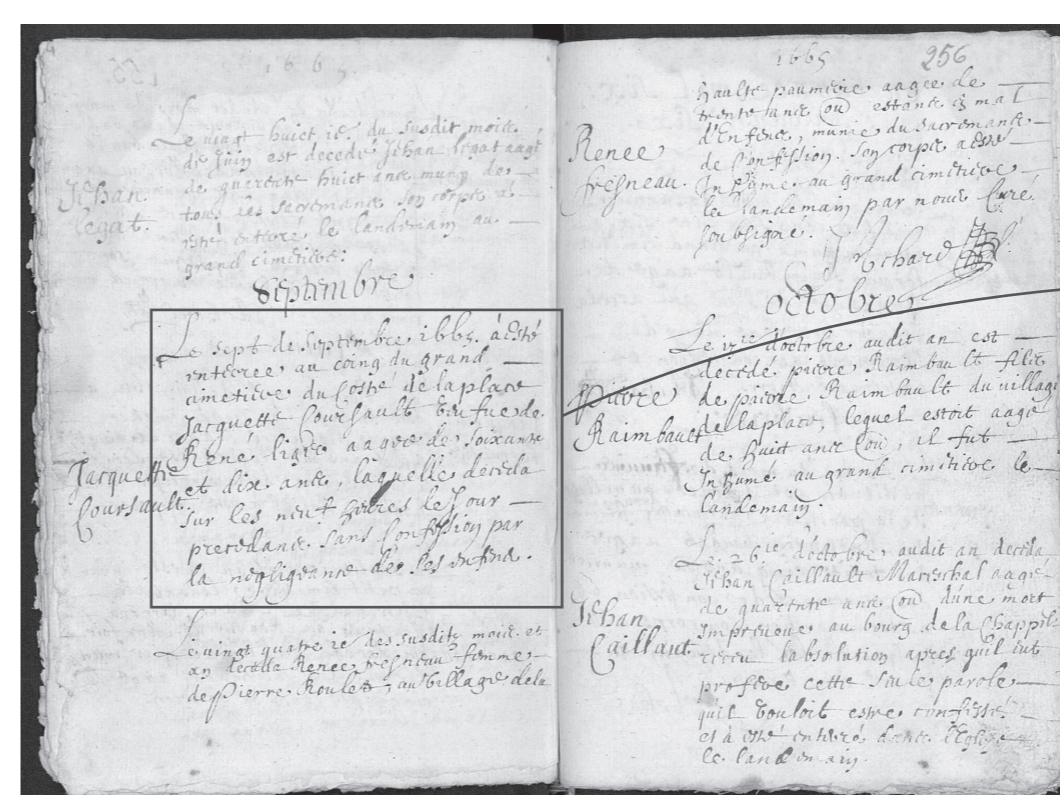 1665
Le vingt huict ie du susdit mois
de Juin est decedé Jehan legat aagé
de quarente huict ans muny de
tous les sacremans son corps a
esté enterré le landemain au
grand cimitiere.
Jehan
legat.
Septembre
Le sept de Septembre 1665 à esté
enterree au coing du grand
cimetiere du costé de la place
Jacquette Coursault veufue de
René liger aagee de soixante
et dix ans, laquelle deceda
sur les neuf heures le Jour
precedans sans confession par
la negligeance de ses enfens.
Jacquette
Coursault.
Le vingt quatre ie des susdits mois et
an deceda Renee fresneau femme
de Pierre Roulet, au village de la
1665
256
haulte paumerie aagee de
trente ans ou estans en mal
d'Enfens, munie du sacremans
de Confession. Son corps a esté
Inhume au grand cimitiere
le landemain par nous Curé
soubsigné.
J Rchard
Renee
fresneau.
Octobre
Le 17ie d'octobre audit an est
decedé pierre Raimbault filz
de pierre Raimbault du village
de la place, lequel estoit aagé
de huict ans ou, il fut
Inhumé au grand cimitiere le
landemain.
Pierre
Raimbault
Le 26ie d'octobre audit an deceda
Jehan Caillault Mareschal aagé
de quarente ans ou d'une mort
Impreveue au bourg de la Chappelle
receu l'absolution apres quil eut
proferé cette seule parole
quil vouloit estre confessé
et à esté enterré dans l'Eglise
le landemain.
Jehan
Caillaut